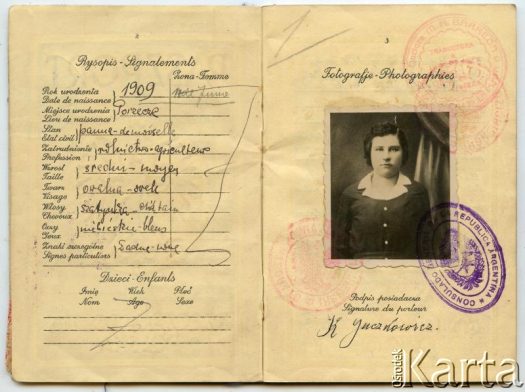 2
Rysopis-Signalements
Żona-Femme
Rok urodzenia 1909
Date de naissance
Miejsce urodzenia Porzecze
Lieu de naissance
Stan panna-demoiselle
Etat civil
Zatrudnienie rolnictwo-agriculteur
Profession
Wzrost średni-moyen
Taille
Twarz owalna-ovale
Visage
Włosy szatynka-châtain
Cheveux
Oczy niebieskie-bleus
Yeux
Znaki szczególne żadne
Signes particuliers
Dzieci-Enfants
Imię Wiek Płeć
Nom Age Sexe
3
Fotografje-Photographies
REPUBLICA ARGENTINA
CONSULADO
Podpis posiadacza
Signature du porteur
ośrodek
Karta